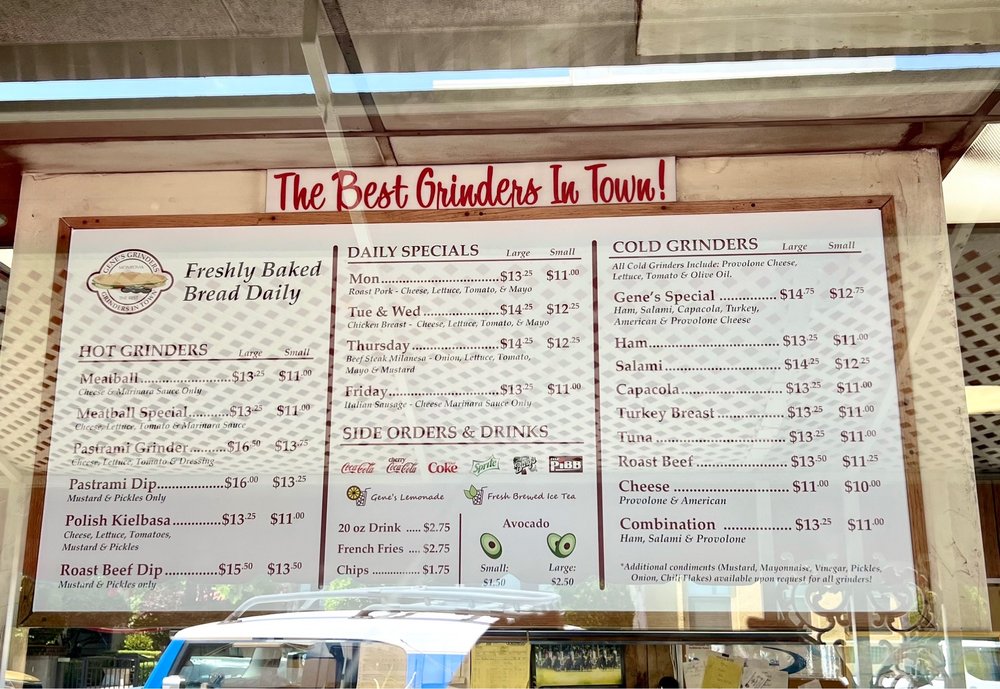 The Best Grinders In Town!
GENE'S GRINDERS
MONROVIA
THE BEST
GRINDERS IN TOWN
Freshly Baked
Bread Daily
HOT GRINDERS Large Small
Meatball $13.25 $11.00
Cheese & Marinara Sauce Only
Meatball Special $13.25 $11.00
Cheese, Lettuce, Tomato & Marinara Sauce
Pastrami Grinder $16.50 $13.75
Cheese, Lettuce, Tomato & Dressing
Pastrami Dip $16.00 $13.25
Mustard & Pickles Only
Polish Kielbasa $13.25 $11.00
Cheese, Lettuce, Tomatoes,
Mustard & Pickles
Roast Beef Dip $15.50 $13.50
Mustard & Pickles only
DAILY SPECIALS Large Small
Mon $13.25 $11.00
Roast Pork - Cheese, Lettuce, Tomato, & Mayo
Tue & Wed $14.25 $12.25
Chicken Breast - Cheese, Lettuce, Tomato, & Mayo
Thursday $14.25 $12.25
Beef Steak Milanesa - Onion, Lettuce, Tomato,
Mayo & Mustard
Friday $13.25 $11.00
Italian Sausage - Cheese Marinara Sauce Only
SIDE ORDERS & DRINKS
Coca-Cola cherry Coca-Cola Diet Coke Sprite PIBB
Gene's Lemonade Fresh Brewed Ice Tea
20 oz Drink .... $2.75
French Fries .... $2.75
Chips ................ $1.75
Avocado
Small: Large:
$1.50 $2.50
COLD GRINDERS Large Small
All Cold Grinders Include: Provolone Cheese,
Lettuce, Tomato & Olive Oil.
Gene's Special $14.75 $12.75
Ham, Salami, Capacola, Turkey,
American & Provolone Cheese
Ham $13.25 $11.00
Salami $14.25 $12.25
Capacola $13.25 $11.00
Turkey Breast $13.25 $11.00
Tuna $13.25 $11.00
Roast Beef $13.50 $11.25
Cheese $11.00 $10.00
Provolone & American
Combination $13.25 $11.00
Ham, Salami & Provolone
*Additional condiments (Mustard, Mayonnaise, Vinegar, Pickles,
Onion, Chili Flakes) available upon request for all grinders!